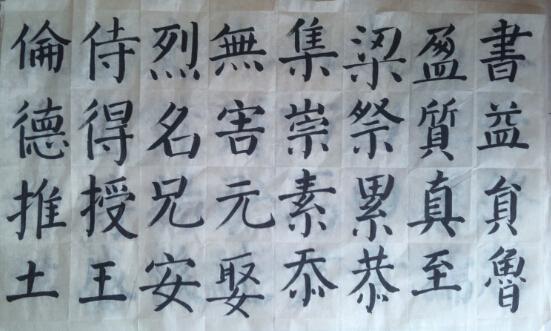 書益貟魯
盈質真至
梁祭累恭
集崇素忝
無害元娶
烈名兄安
侍得授王
倫德推土